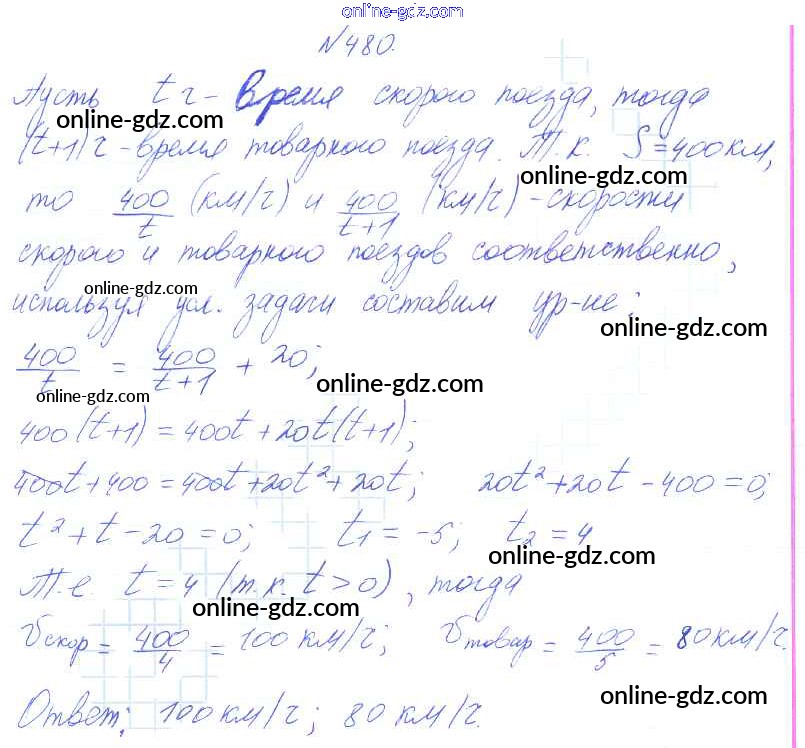 online-gdz.com
№480.
Пусть t ч - время скорого поезда, тогда
online-gdz.com
(t+1)ч - время товарного поезда. Т.к. S=400км,
online-gdz.com
то 400/t (км/ч) и 400/t+1 (км/ч) - скорости
скорого и товарного поездов соответственно,
online-gdz.com
используя усл. задачи составим ур-не:
online-gdz.com
400/t = 400/t+1 + 20;
online-gdz.com
online-gdz.com
400(t+1) = 400t + 20t(t+1);
online-gdz.com
400t+400 = 400t+20t²+20t; 20t²+20t-400=0;
t²+t-20=0; t1=-5; t2=4
online-gdz.com
Т.е. t=4 (т.к. t>0), тогда
online-gdz.com
Vскор = 400/4 = 100 км/ч; Vтовар = 400/5 = 80км/ч.
online-gdz.com
Ответ: 100 км/ч; 80 км/ч.